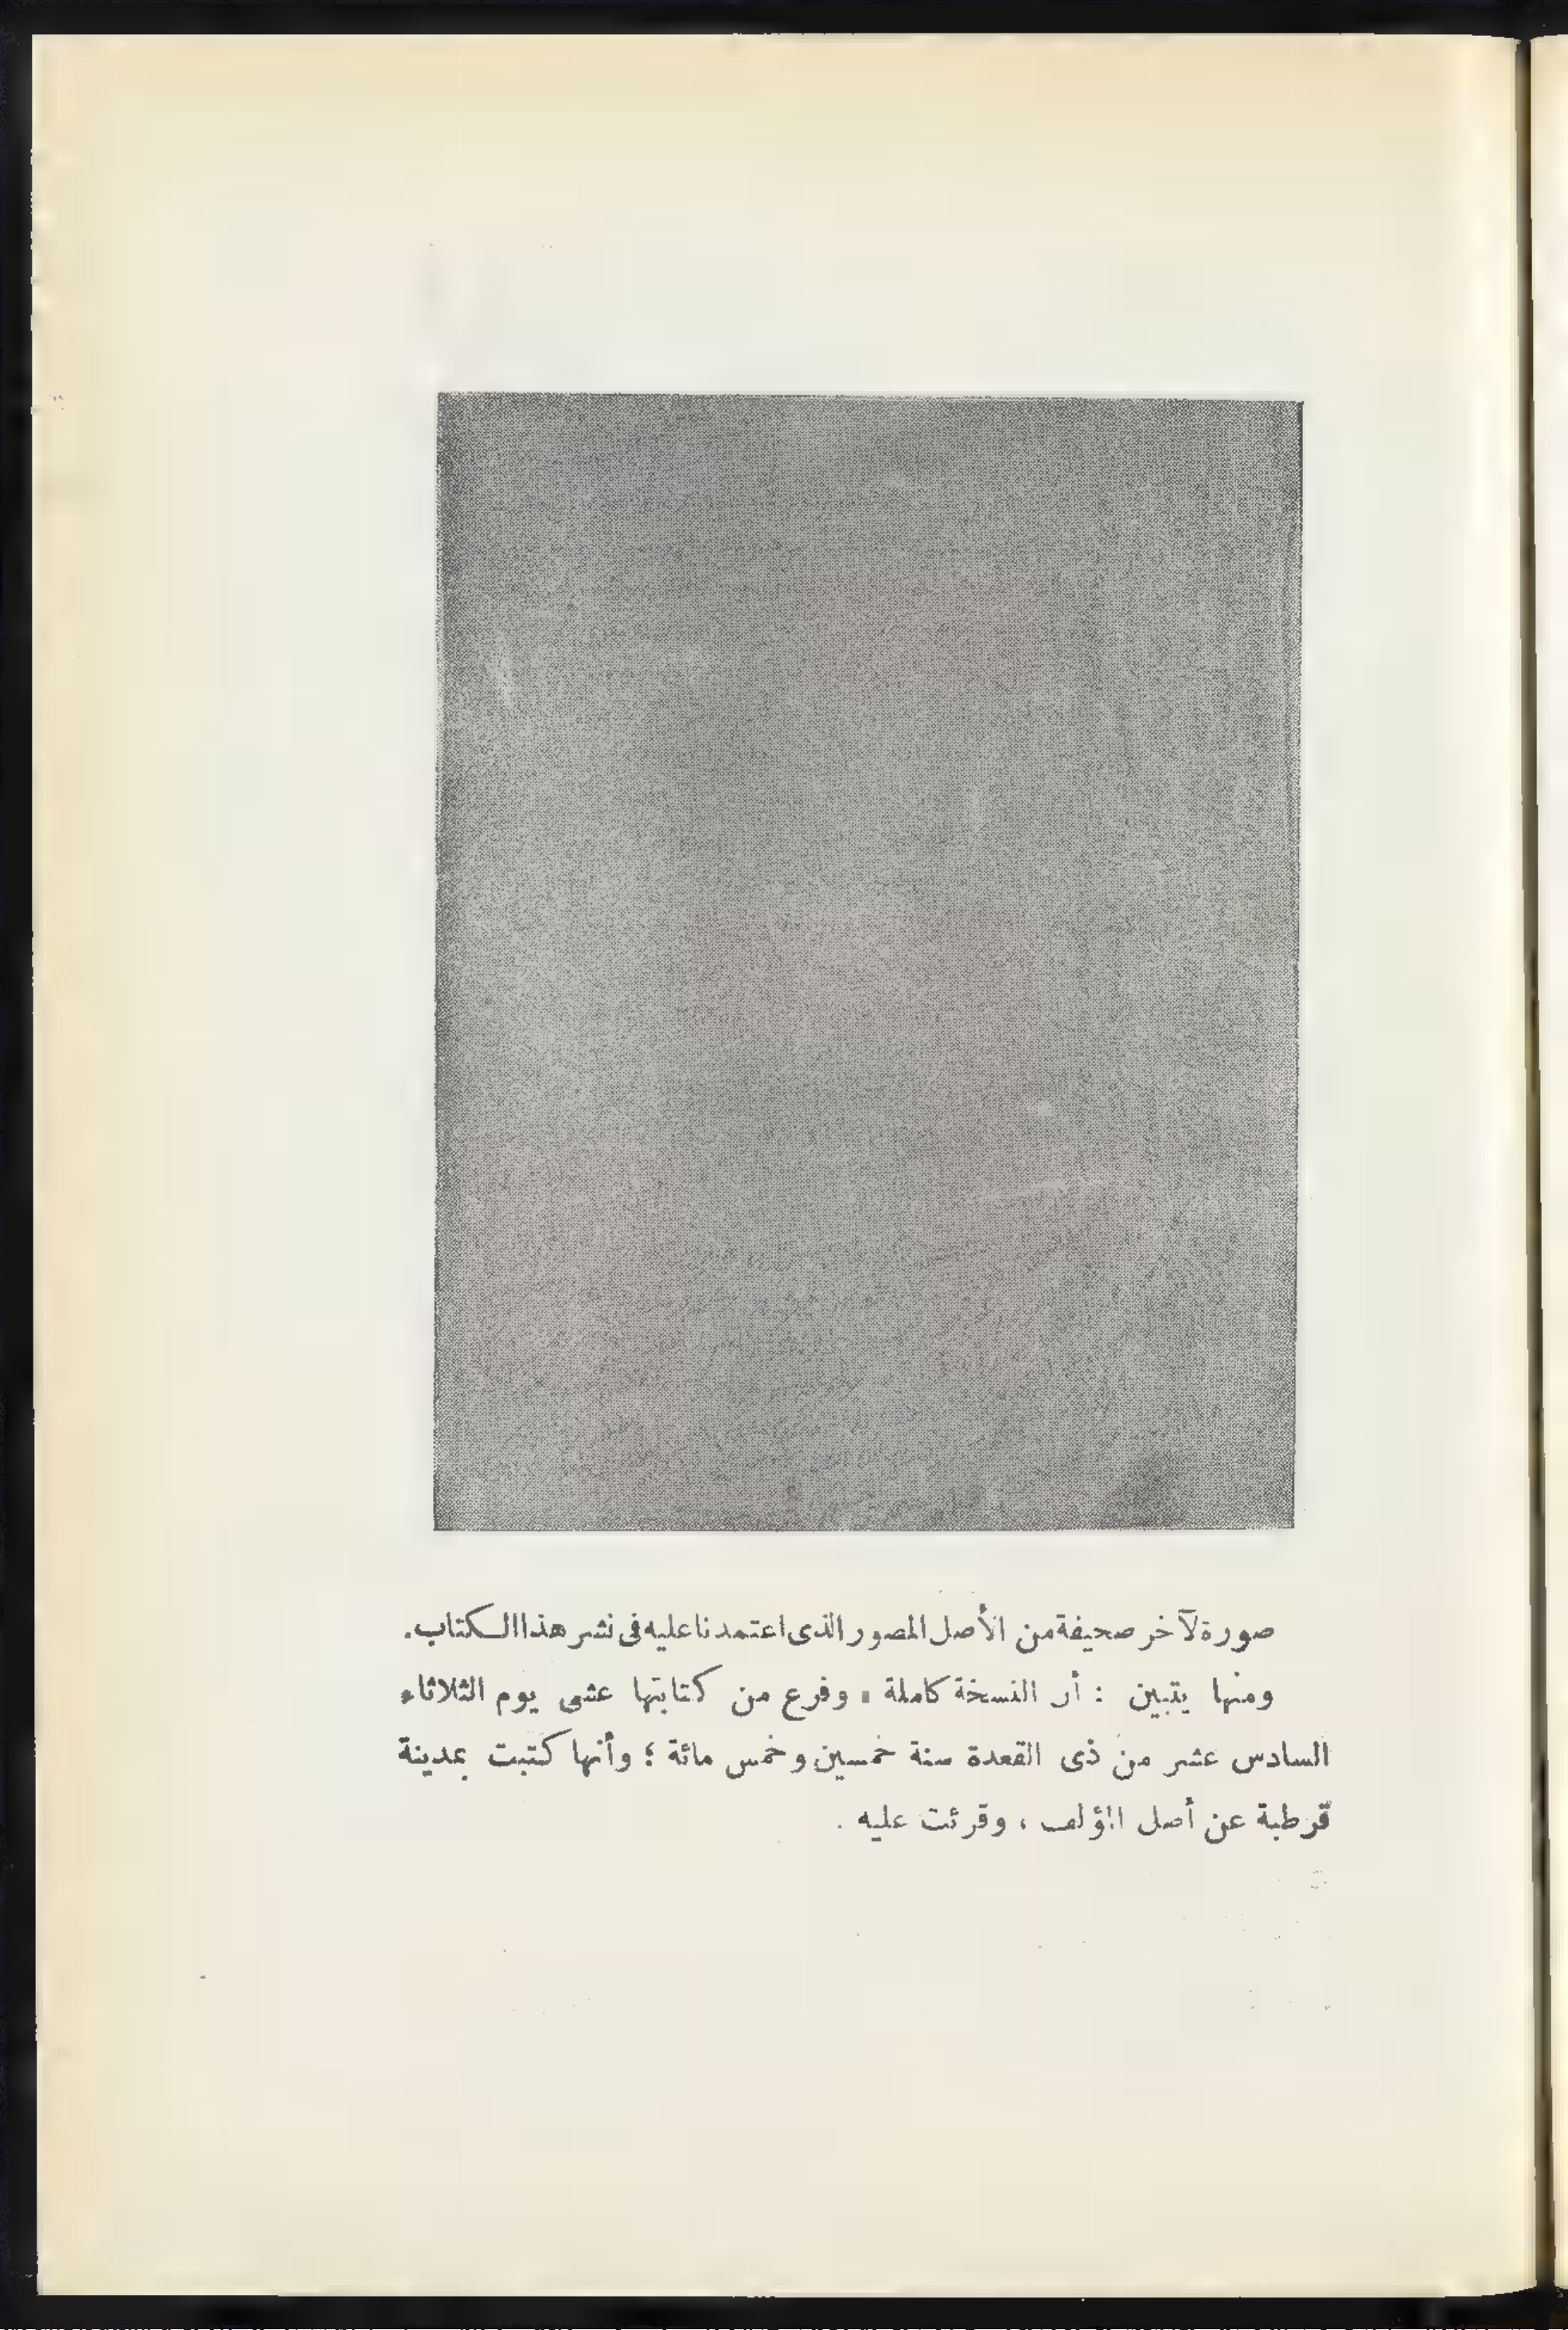 صورة لآخر صحيفة من الأصل المصور الذى اعتمدنا عليه فى نشر هذا الكتاب.
ومنها يتبين : أن النسخة كاملة ، وفرغ من كتابتها عشى يوم الثلاثاء
السادس عشر من ذى القعدة سنة خمسين وخمس مائة ؛ وأنها كتبت بمدينة
قرطبة عن أصل المؤلف ، وقرئت عليه .